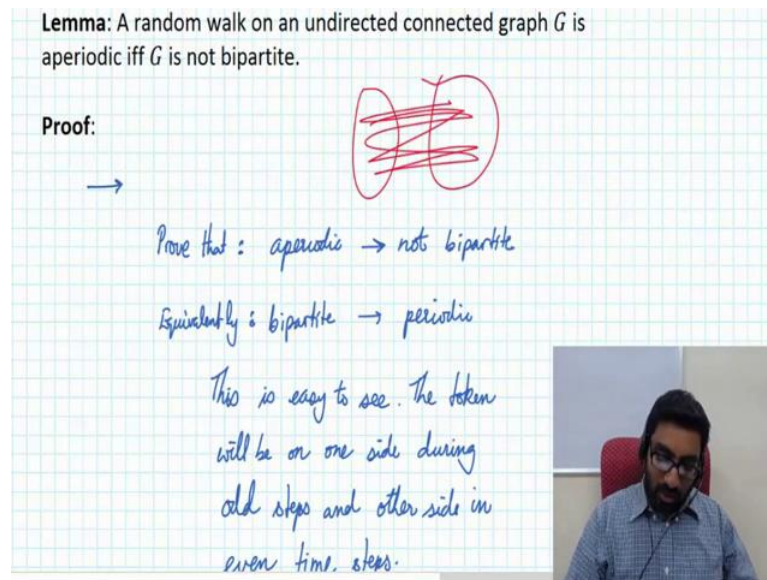 Lemma: A random walk on an undirected connected graph G is
aperiodic iff G is not bipartite.
Proof:
→
Prove that : aperiodic → not bipartite
Equivalently : bipartite → periodic
This is easy to see. The token
will be on one side during
odd steps and other side in
even time steps.